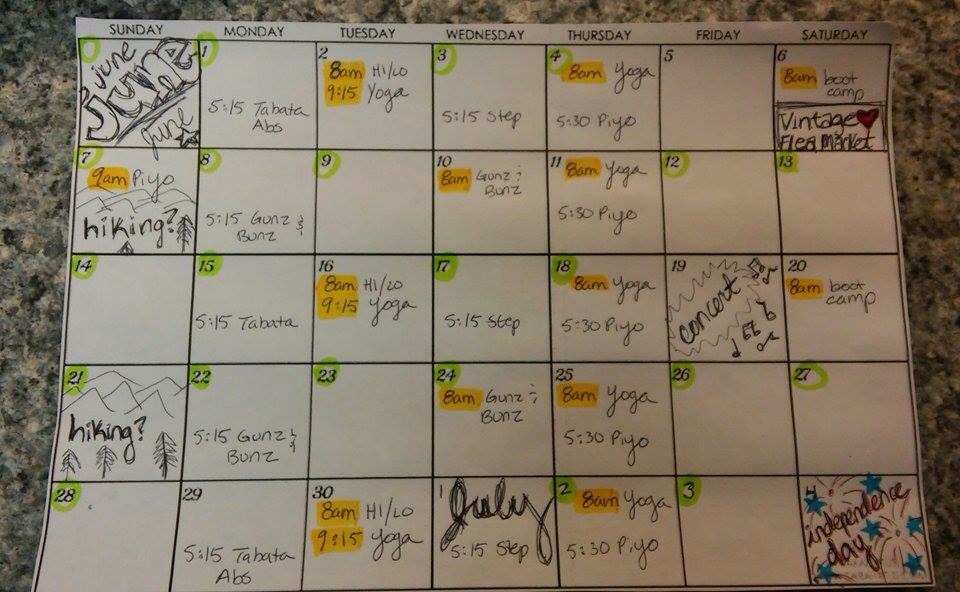 SUNDAY MONDAY TUESDAY WEDNESDAY THURSDAY FRIDAY SATURDAY
june
June
june
1
5:15 Tabata
Abs
2
8am Hi/Lo
9:15 Yoga
3
5:15 Step
4
8am Yoga
5:30 Piyo
5
6
8am boot
camp
Vintage
Flea Market
7
9am Piyo
hiking?
8
5:15 Gunz &
Bunz
9
10
8am Gunz &
Bunz
11
8am Yoga
5:30 Piyo
12
13
14
15
5:15 Tabata
16
8am Hi/Lo
9:15 Yoga
17
5:15 Step
18
8am Yoga
5:30 Piyo
19
concert
20
8am boot
camp
21
hiking?
22
5:15 Gunz &
Bunz
23
24
8am Gunz &
Bunz
25
8am Yoga
5:30 Piyo
26
27
28
29
5:15 Tabata
Abs
30
8am Hi/Lo
9:15 Yoga
1
July
5:15 Step
2
8am Yoga
5:30 Piyo
3
4
independence
day